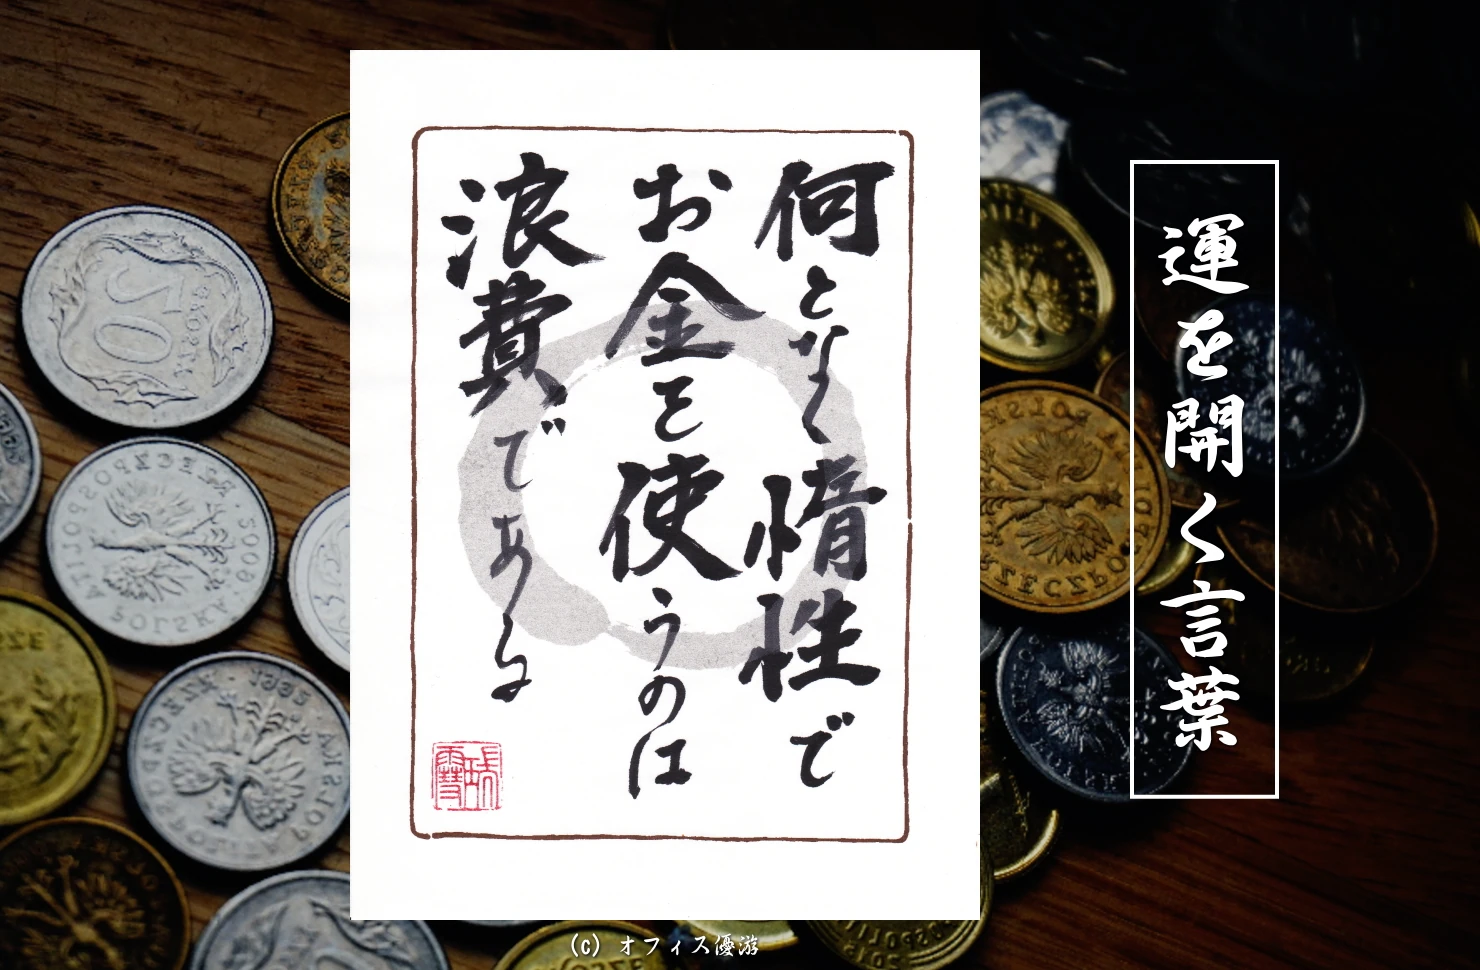 運を開く言葉
何となく惰性で
お金を使うのは
浪費である
(c) オフィス優游